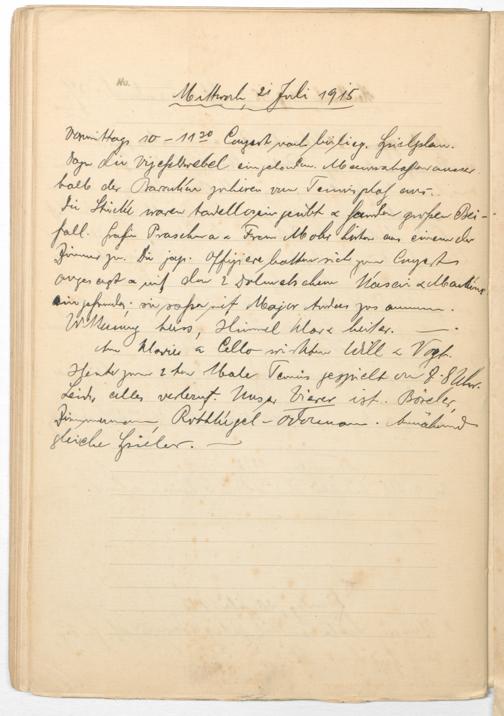 No.
Mittwoch, 21 Juli 1915
Vormittags 10 – 11 30 Conzert nach Spielplan.
Dazu die Vizefeldwebel eingeladen. Mannschaften ausser-
halb der Baracken hören vom Tennisplatz aus.
Die Stücke waren tadellos eingeübt & fanden großen Bei-
fall. Graf Praschma & Frau Mohr hörten aus einem der
Zimmer zu. Die jap. Offiziere hatten sich zum Conzert
angesagt & mit den 2 Dolmetschern &
eingefunden; sie saßen mit Major Anders zusammen.
Witterung heiss, Himmel klar & heiter. —
Am Klavier & Cello wirkten Will & Vogt.
Heute zum 2ten Male Tennis gespielt von 7-8 Uhr.
Leider alles verlernt. Unser Vierer ist
Zimmermann, Annähernd
gleiche Spieler. —